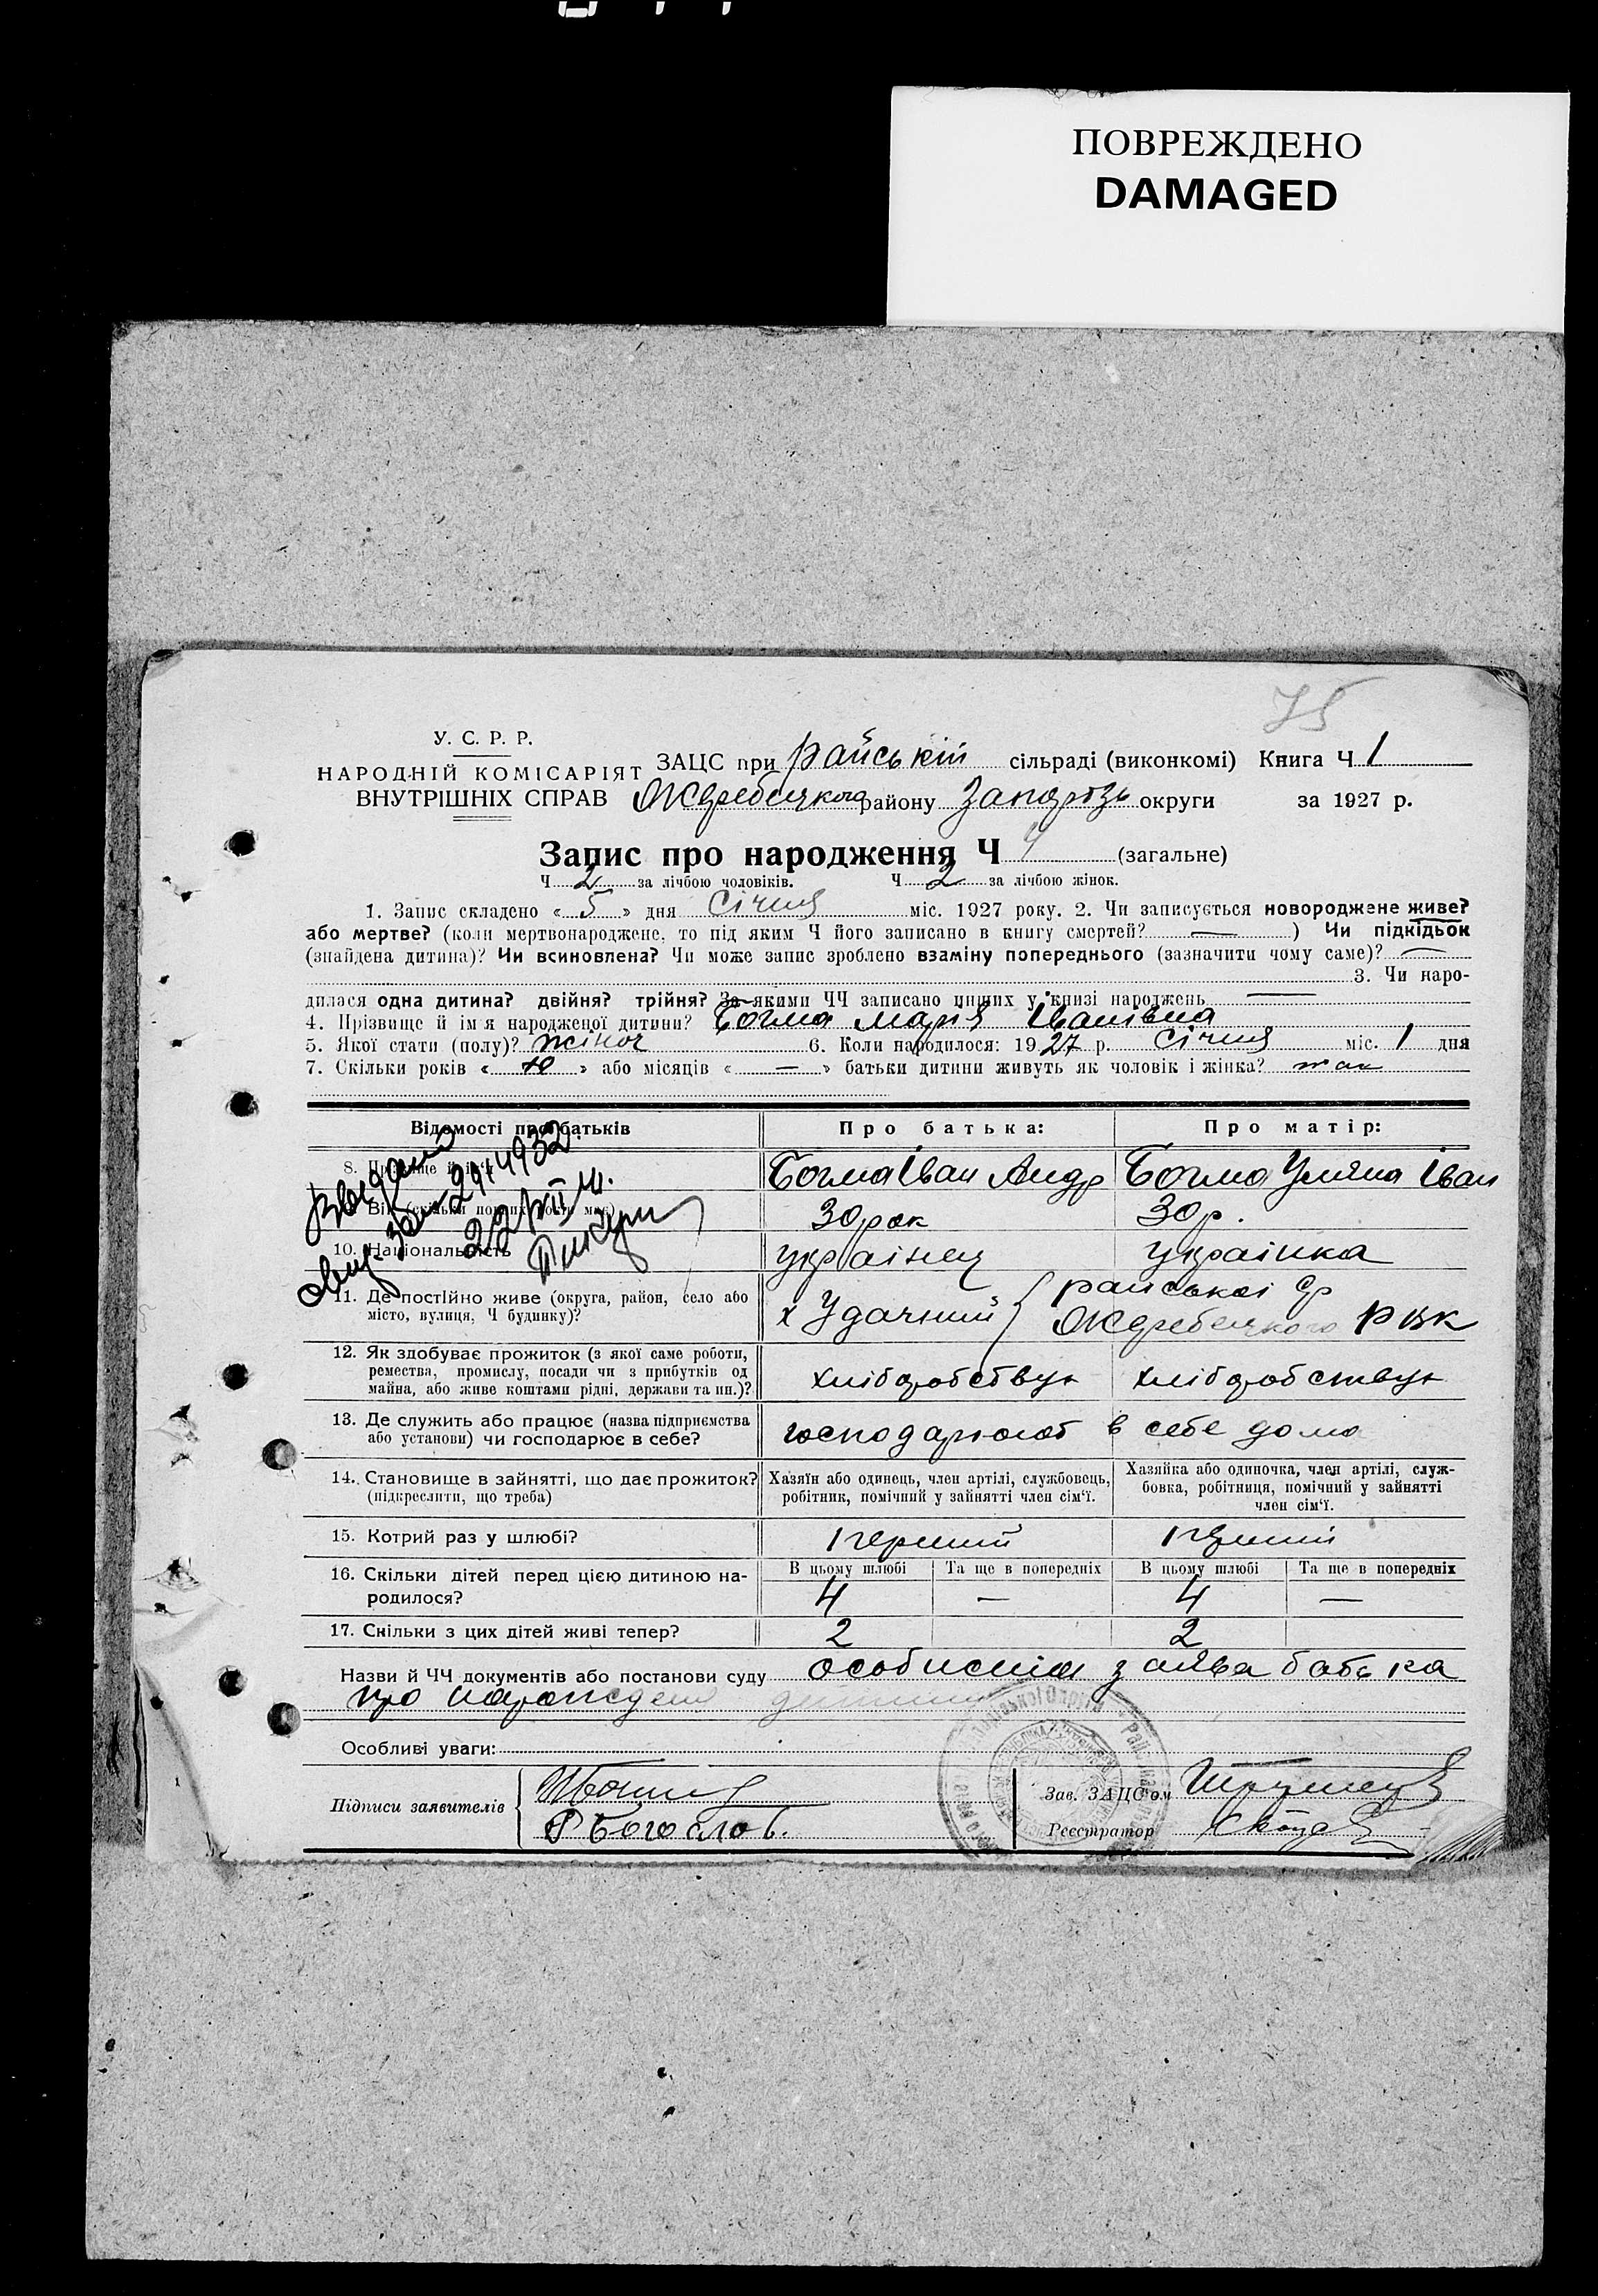 ПОВРЕЖДЕНО
DAMAGED
75
У. С. Р. Р.
НАРОДНІЙ КОМІСАРІЯТ
ВНУТРІШНІХ СПРАВ
ЗАЦС при Райській сільраді (виконкомі) Книга Ч 1
Жеребецького району Запорізь округи за 1927 р.
Запис про народження Ч 4 (загальне)
Ч 2 за лічбою чоловіків. Ч 2 за лічбою жінок.
1. Запис складено « 5 » дня Січня міс. 1927 року. 2. Чи записується новороджене живе?
або мертве? (коли мертвонароджене, то під яким Ч його записано в книгу смертей? — ) Чи підкідьок
(знайдена дитина)? Чи всиновлена? Чи може запис зроблено взаміну попереднього (зазначити чому саме)? —
3. Чи наро-
дилася одна дитина? двійня? трійня? За якими ЧЧ записано инших у книзі народжень —
4. Прізвище й ім'я народженої дитини? Богма Марія Іванівна
5. Якої стати (полу)? жіноч 6. Коли народилося: 1927 р. Січня міс. 1 дня
7. Скільки років « 10 » або місяців « — » батьки дитини живуть як чоловік і жінка? так
Відомості про батьків
Про батька:
Про матір:
8. Прізвище й ім'я
Богма Іван Андр
Богма Уляна Іван
Вік (скільки повних років має)
30 рок
30 р.
10. Національність
українец
українка
11. Де постійно живе (округа, район, село або
місто, вулиця, Ч будинку)?
х Удачний
райської Ср
Жеребецького РВК
12. Як здобуває прожиток (з якої саме роботи,
ремества, промислу, посади чи з прибутків од
майна, або живе коштами рідні, держави та ин.)?
хліборобствує
хліборобствує
13. Де служить або працює (назва підприємства
або установи) чи господарює в себе?
господарюют в себе дома
14. Становище в зайнятті, що дає прожиток?
(підкреслити, що треба)
Хазяїн або одинець, член артілі, службовець,
робітник, помічний у зайнятті член сім'ї.
Хазяйка або одиночка, член артілі, служ-
бовка, робітниця, помічний у зайнятті
член сім'ї.
15. Котрий раз у шлюбі?
1 перший
1 перший
16. Скільки дітей перед цією дитиною на-
родилося?
В цьому шлюбі
Та ще в попередніх
В цьому шлюбі
Та ще в попередніх
4 — 4 —
17. Скільки з цих дітей живі тепер?
2 2
Назви й ЧЧ документів або постанови суду особистій заява батька
про нарождения дитини
Особливі уваги:
Підписи заявителів
Р Богослов.
Зав. ЗАЦС'ом
Реєстратор